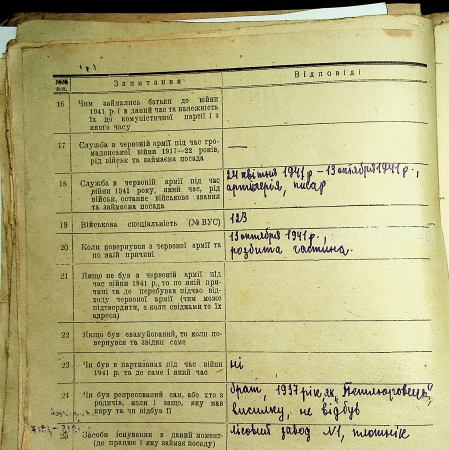 №№ п-п. Запитання Відповіді
16 Чим займались батьки до війни
1941 р. і в даний час та належність
їх до комуністичної партії і з
якого часу
17 Служба в червоній армії під час гро-
мадянської війни 1917—22 років,
рід військ та займаєма посада
—
18 Служба в червоній армії під час
війни 1941 року, який час, рід
військ, останнє військове звання
та займаєма посада
24 квітня 1941 р – 13 октября 1941 р.,
артилерія, писар
19 Військова спеціальність (№ ВУС)
123
20 Коли повернувся з червоної армії та
по якій причині
13 октября 1941 р.,
розбита частина.
21 Якщо не був в червоній армії під
час війни 1941 р., то по якій при-
чині та де перебував підчас від-
ходу червоної армії (чим може
підтвердити, а коли свідками то їх
адреса)
22 Якщо був евакуйований, то коли по-
вернувся та звідки саме
23 Чи був в партизанах під час війни
1941 р. та де саме і який час
ні
24 Чи був репресований сам, або хто з
родичів, коли і защо, яку мав
кару та чи відбув її
брат, 1937 рік як „Петлюровець",
висилку, не відбув
25 Засоби існування в даний момент
(де працює і яку займає посаду)
лісовий завод №1, плотнік